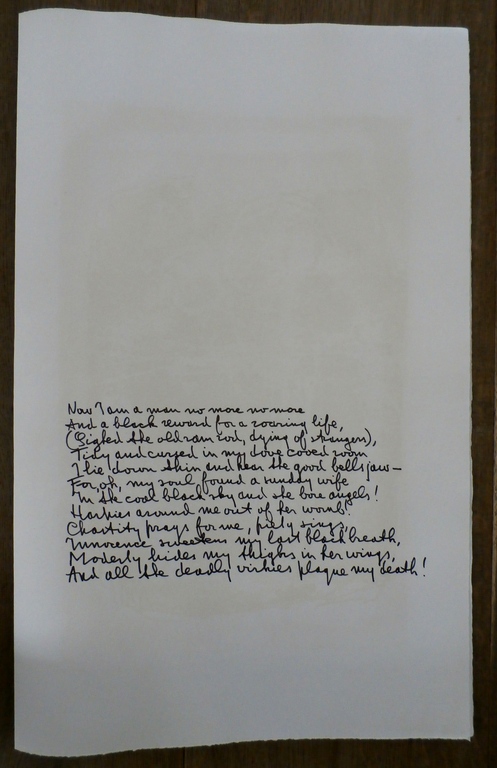 Now I am a man no more no more
And a black reward for a roaring life,
(Sighed the old ram rod, dying of strangers),
Tidy and cursed in my dove cooed room
I lie down thin and hear the good bells jaw—
For, oh, my soul found a sunday wife
In the coal black sky and she bore angels!
Harpies around me out of her womb!
Chastity prays for me, piety sings,
Innocence sweetens my last black breath,
Modesty hides my thighs in her wings,
And all the deadly virtues plague my death!